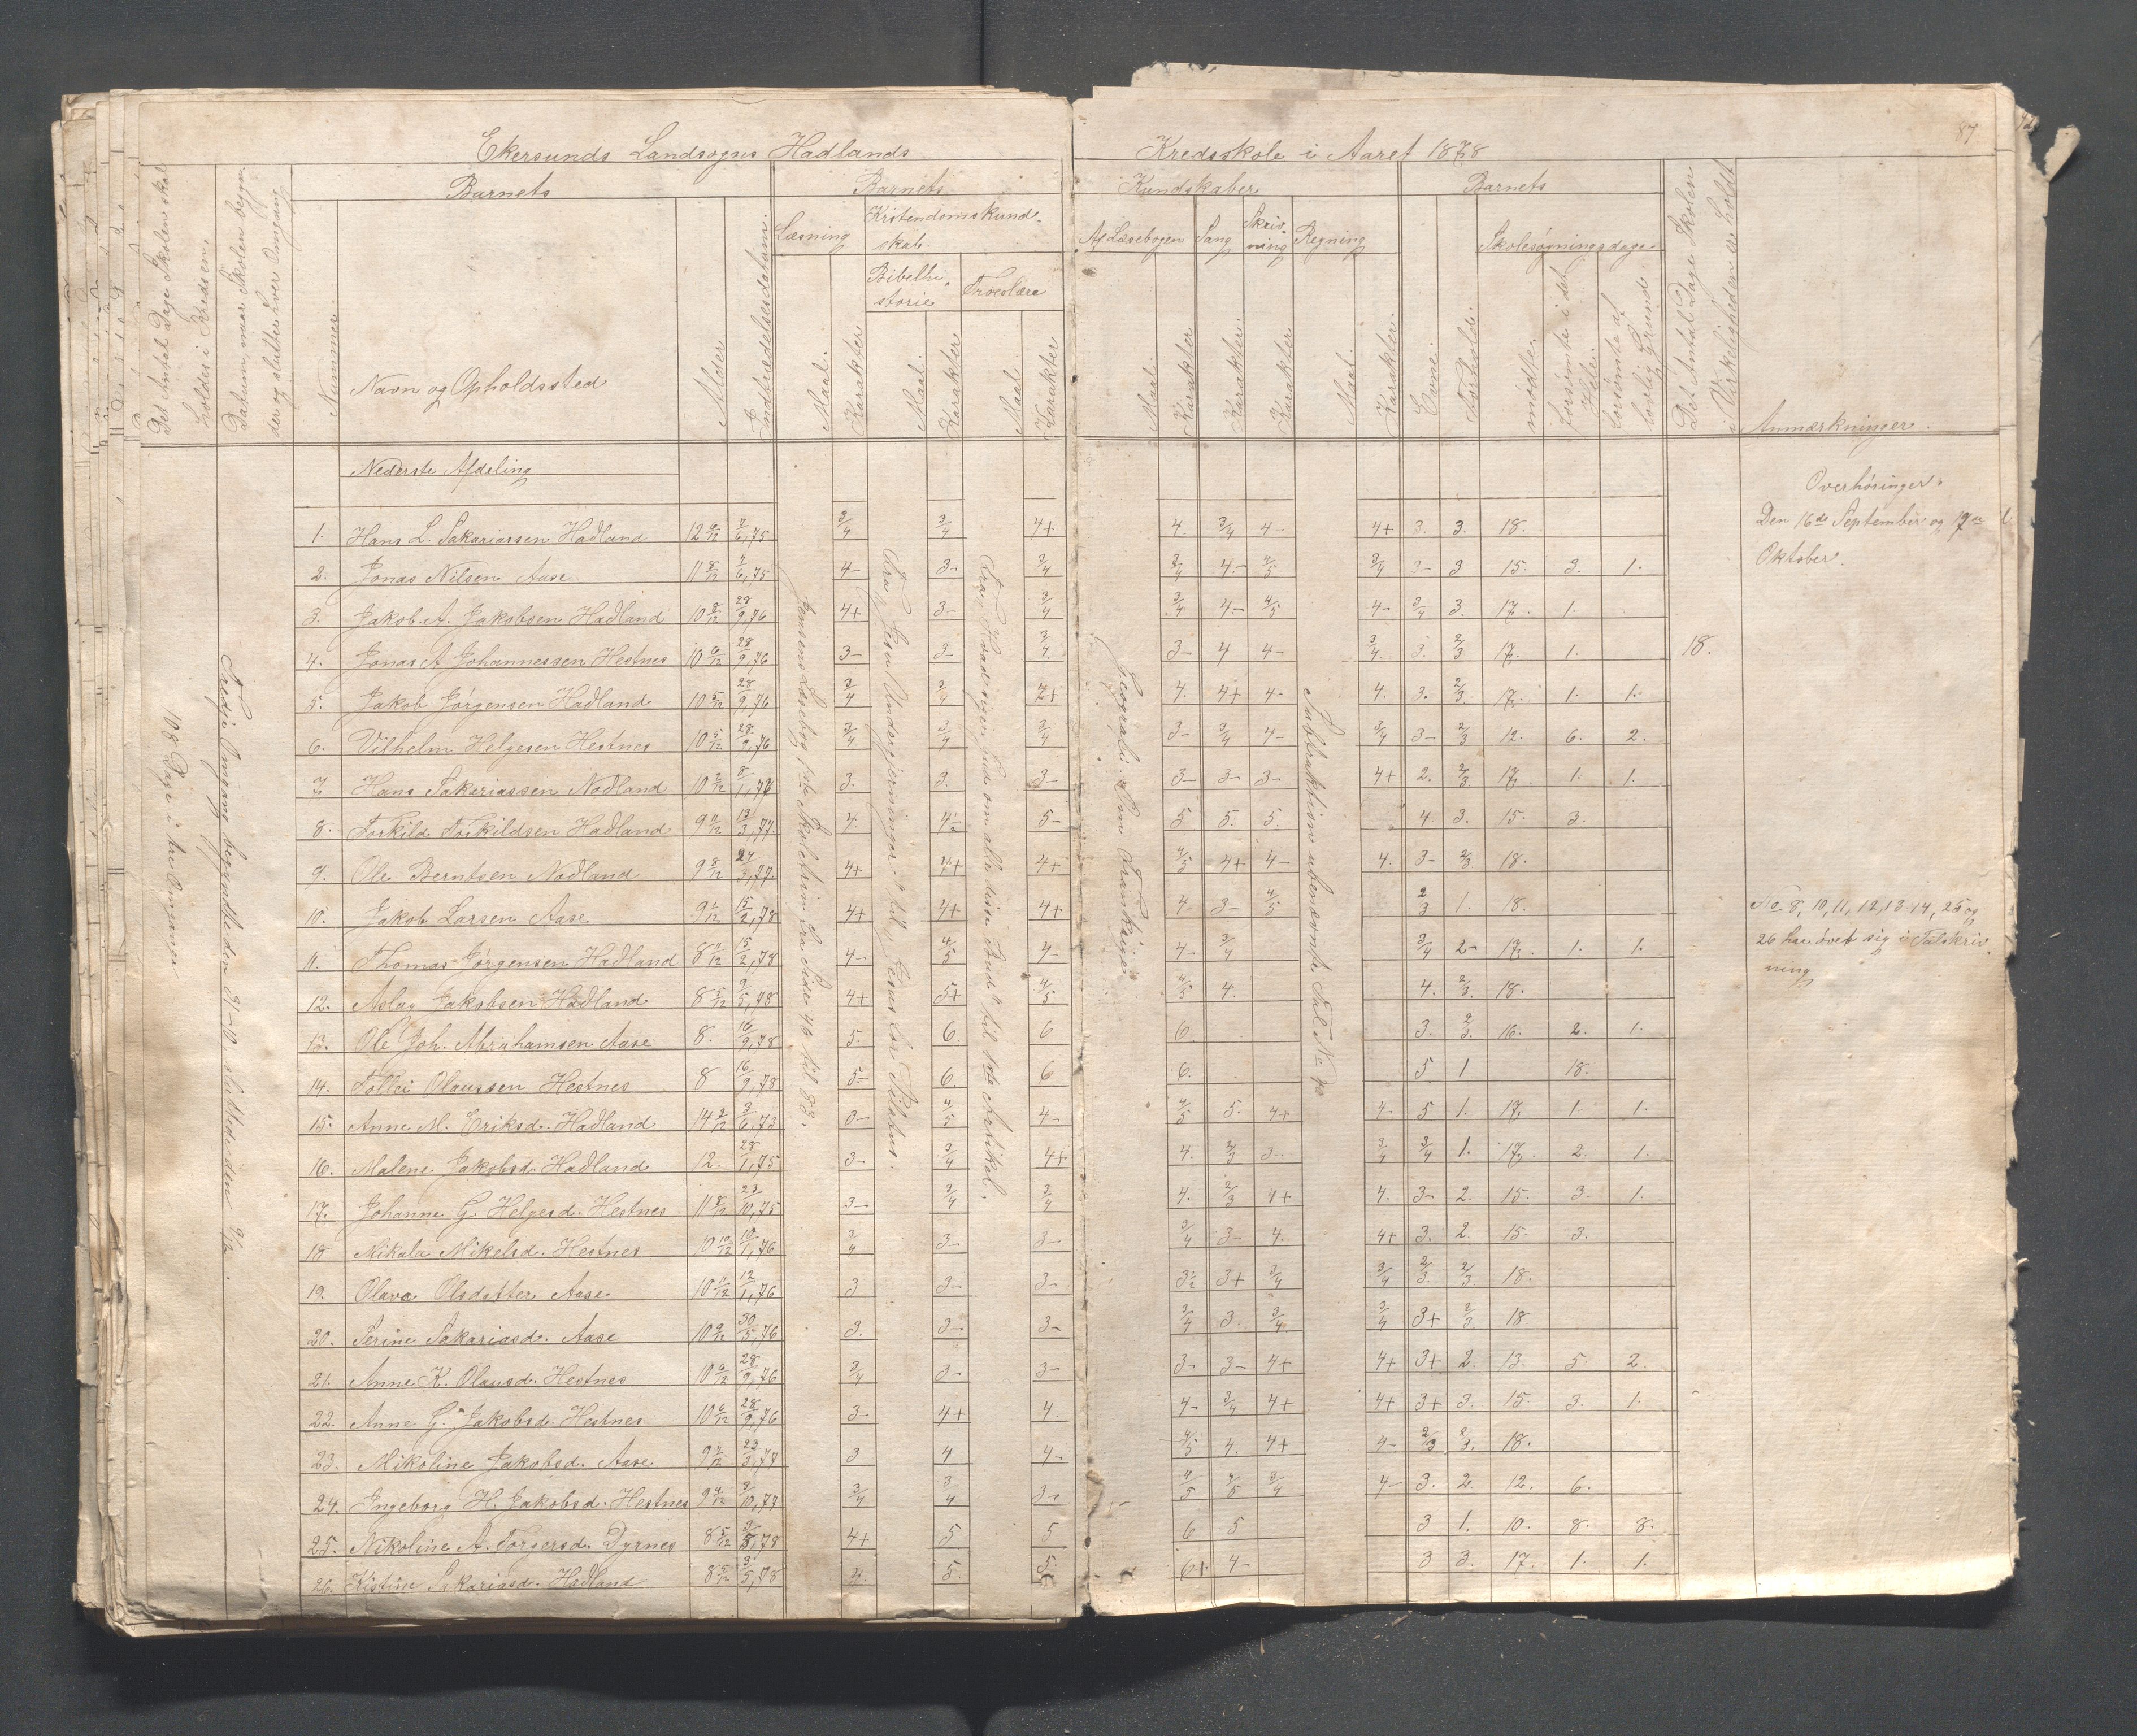 87
Ekersunds Landsogns Hadlands Kredsskole i Aaret 1878
Det Antal Dage Skolen skal holdes i Kredsen.
Datum, naar Skolen begynder og slutter hver Omgang
Barnets
Nummer.
Navn og Opholdssted
Alder.
Indtrædelsesdatum.
Barnets Kundskaber
Læsning
Maal.
Karakter
Kristendomskundskab.
Bibelhistorie
Maal.
Karakter
Troeslære
Maal.
Karakter
Af Læsebogen
Maal.
Karakter
Sang
Karakter.
Skrivning
Karakter
Regning
Maal.
Karakter.
Barnets
Evne.
Forhold.
Skolesøgningsdage.
mødte.
forsømte i det Hele.
forsømte af lovlig Grund.
Det Antal Dage Skolen i Virkeligheden er holdt
Anmærkninger.
Nederste Afdeling
108 Dage i tre Omgange
Tredje Omgang begyndte den 21-10 sluttede den
Jensens Læsebog 1ste Skoletrin fra Side 46 til 83.
Fra "Jesu Undergjerninger" til "Jesus for Pilatus".
Fra "Hvad siger Gud om alle disse Bud" til 1ste Artikel.
Geografi. Om Frankrige
Subtraktion ubenævnte Tal
1. Hans L. Sakariassen Hadland 12 9/12 7/6,75 3/4 3/4 4+ 4. 3/4 4- 4+ 3. 3. 18.
2. Jonas Nilsen Aase 11 8/12 7/6,75 4- 3- 3/4 3/4 4- 4/5 3/4 3- 3 15. 3. 1.
3. Jakob A. Jakobsen Hadland 10 8/12 28/9,76 4+ 3- 3/4 3/4 4- 4/5 4- 3/4 3. 17. 1.
4. Jonas A Johannessen Hestnes 10 6/12 28/9,76 3- 3- 3/4 3- 4 4- 3/4 3. 2/3 17. 1.
5. Jakob Jørgensen Hadland 10 5/12 28/9,76 3/4 3/4 4+ 4. 4+ 4- 4. 3. 2/3 17. 1. 1.
6. Vilhelm Helgesen Hestnes 10 5/12 28/9,76 3/4 3/4 3/4 3- 3/4 4- 3/4 3- 2/3 12. 6. 2.
7. Hans Sakariassen Nodland 10 2/12 8/1,78 3. 3. 3- 3- 3- 3- 4+ 2. 2/3 17. 1. 1.
8. Torkild Torkildsen Hadland 9 11/12 13/3,77 4. 4½ 5- 5 5. 5. 4 3. 15. 3.
9. Ole Berntsen Nodland 9 8/12 24/3,77 4+ 4+ 4+ 4/5 4+ 4- 4. 3- 2/3 18.
10. Jakob Larsen Aase 9 1/12 15/2,78 4+ 4+ 4+ 4- 3- 4/5 2/3 1. 18.
11. Thomas Jørgensen Hadland 8 11/12 15/2,78 4- 4/5 4- 4- 3/4 3/4 2- 17. 1. 1.
12. Aslag Jakobsen Hadland 8 5/12 3/5,78 4+ 5+ 4/5 4/5 4 4. 2/3. 18.
13. Ole Joh. Abrahamsen Aase 8. 16/9,78 5. 6. 6 6. 3. 2/3. 16. 2. 1.
14. Tollei Olaussen Hestnes 8 16/9,78 5- 6. 6 6. 5 1 18.
15. Anne M. Eriksd. Hadland 14 2/12 3/6,73 3- 4/5 4- 4/5 5. 4+ 4- 5 1. 17. 1. 1.
16. Malene Jakobsd. Hadland 12. 28/1,75 3- 3/4 4+ 4. 2/3 3- 3/4 3/4 1. 17. 2. 1.
17. Johanne G. Helgesd. Hestnes 11 8/12 23/10,75 3- 3/4 3/4 4. 2/3 4+ 4. 3- 2. 15. 3. 1.
18 Nikala Mikelsd. Hestnes 10 10/12 10/1,76 3/4 3- 3- 3/4 3- 4. 4+ 3. 2. 15. 3.
19. Olava Olsdatter Aase 10 11/12 12/1,76 3 3- 3- 3½ 3+ 3/4 3/4 2/3. 2/3. 18.
20. Serine Sakariasd. Aase 10 9/12 30/5,76 3. 3- 3- 3/4 3. 3/4 3/4 3+ 2/3. 18.
21. Anne K. Olausd. Hestnes 10 6/12 28/9,76 3/4 3- 3- 3- 3- 4+ 4+ 3+ 2. 13. 5. 2.
22. Anne G. Jakobsd. Hestnes 10 6/12 28/9,76 3- 4+ 4. 4- 3/4 4+ 4+ 3+ 3. 15. 3. 1.
23. Mikoline Jakobsd. Aase 9 7/12 23/3,77 3 4 4- 4/5 4. 4+ 4- 2/3 2/3. 18.
24. Ingeborg H. Jakobsd. Hestnes 9 4/12 3/10,77 3/4 3/4 3- 4/5 4/5 3/4 4- 3. 2. 12. 6.
25. Nikoline A. Torgersd. Dyrnes 8 5/12 3/5,78 4+ 5 5 6 5 3 1. 10. 8. 8.
26. Kistine Sakariasd. Hadland 8 5/12 3/5,78 4. 5. 5. 6+ 4- 3 3. 17. 1. 1.
18.
Overhøringer.
Den 16de September og 17de
Oktober.
No 8, 10, 11, 12, 13 14, 25 og
26 har øvet sig i Talskriv-
ning